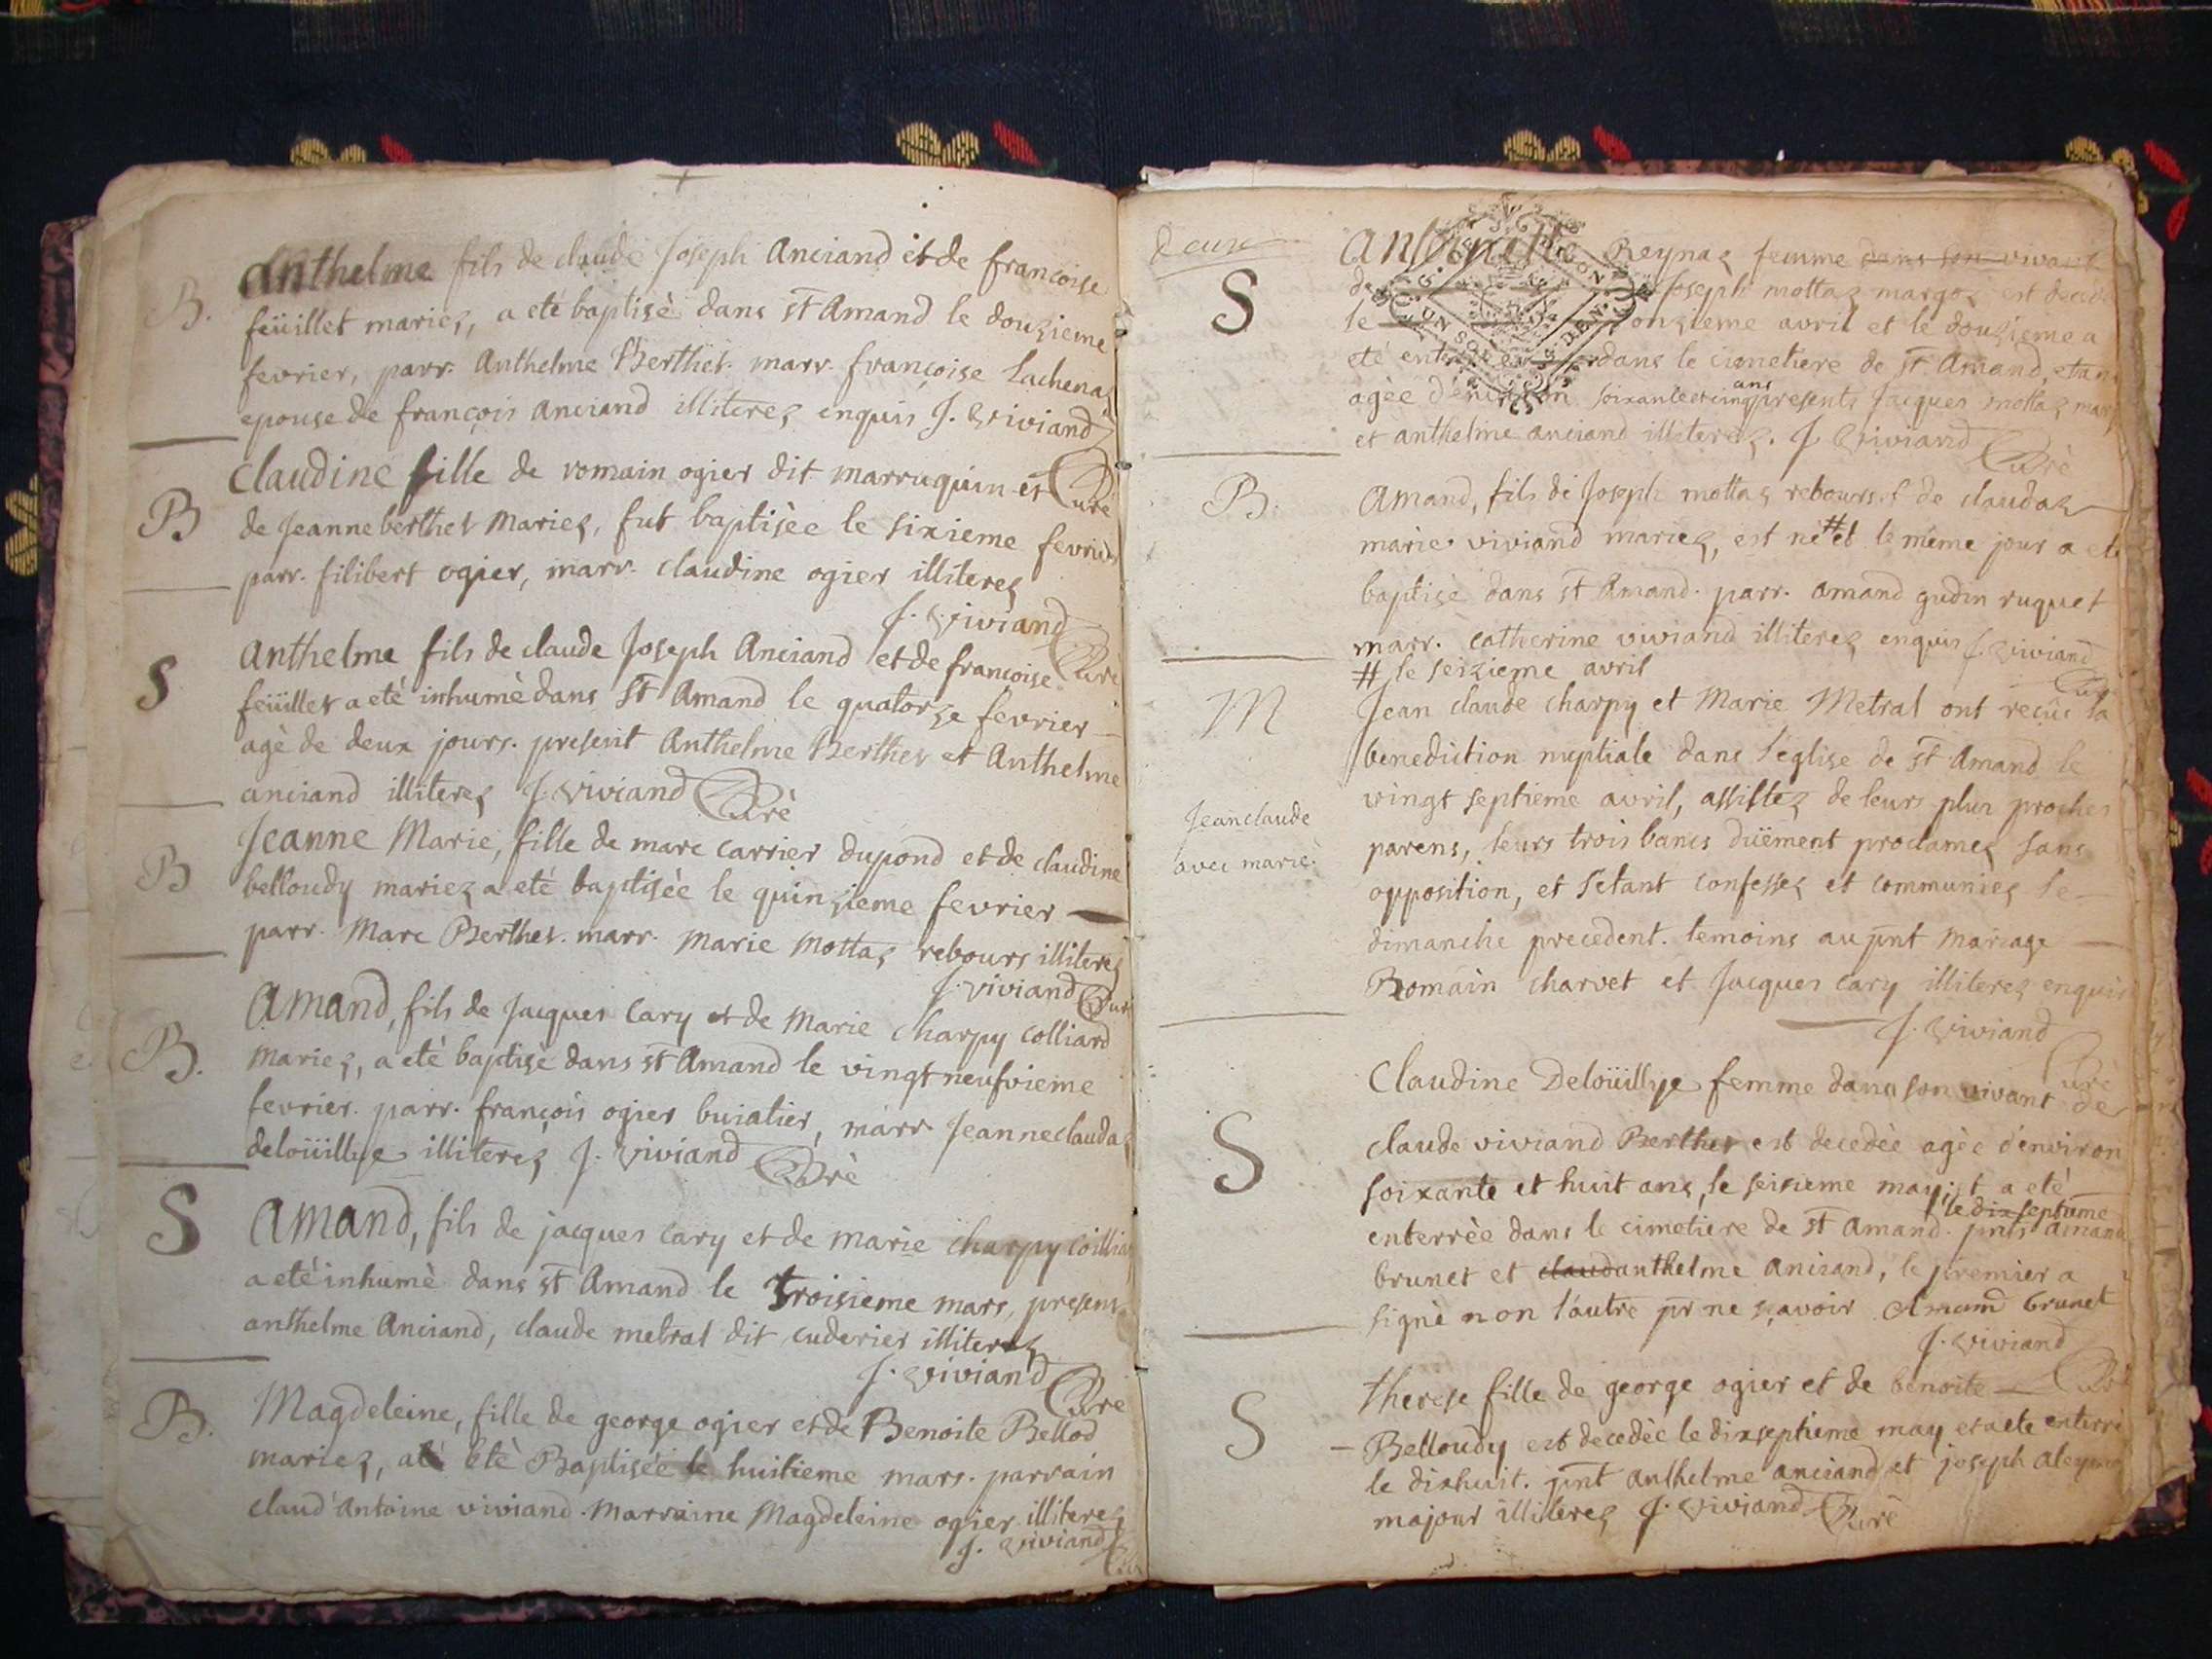 B.
Anthelme fils de claude Joseph Anciand et de francoise
feüillet mariez, a eté baptisé dans st Amand le douzieme
fevrier, parr. Anthelme Berthet. marr. françoise Lachenaz
epouse de françois anciand illiterez enquis J. Viviand
Curé
B
Claudine fille de romain ogier dit marruquin et
de Jeanne berthet mariez, fut baptisèe le sixieme fevrier
parr. filibert ogier, marr. claudine ogier illiterez
J. Viviand
Curé
S
Anthelme fils de claude Joseph Anciand et de francoise
feüillet a eté inhumè dans st Amand le quatorze fevrier
agè de deux jours. present Anthelme Berthet et Anthelme
anciand illiterez J. Viviand Curè
B
Jeanne Marie, fille de marc carrier dupond et de claudine
belloudy mariez a eté baptisèe le quinzieme fevrier
parr. Marc Berthet. marr. marie mottaz rebours illiterez
J. viviand Curé
B.
Amand, fils de Jacques Cary et de Marie charpy colliard
mariez, a eté baptisè dans st Amand le vingt neufvieme
fevrier. parr. françois ogier buiatier, marr Jeanne claudaz
deloüillye illiterez J. Viviand Curè
S
Amand, fils de jacques Cary et de marie charpy
a eté inhumè dans st Amand le troisieme mars, present
anthelme Anciand, claude metral dit cuderier illiterez
J. Viviand Curé
B.
Magdeleine, fille de george ogier et de Benoite Bellod
mariez, a eté Baptisée le huitieme mars. parrain
claud'Antoine viviand. Marraine Magdeleine ogier illiterez
J. Viviand
deux
S
Antoinette Reynaz femme dans son vivant
de Joseph mottaz margoz est decedé
le onzieme avril et le douzieme a
eté enterrèe dans le cimetiere de st Amand, etant
agèe d'environ soixante et cinq ans presents Jacques mottaz
et anthelme anciand illiterez. J Viviand
Curè
B.
Amand, fils de Joseph mottaz rebours et de claudaz
marie viviand mariez, est né # et le même jour a eté
baptisè dans st Amand. parr. amand gudin ruquet
marr. catherine viviand illiterez enquis J. Viviand
# le seizieme avril
Curé
M
Jean claude charpy et Marie Metral ont reçüe la
benediction nuptiale dans l'eglise de st Amand le
vingt septieme avril, assistez de leurs plus proches
Jean claude
avec marie
parens, leurs trois bancs düement proclamez sans
opposition, et s'etant confessez et communiez le
dimanche precedent. temoins au pnt Mariage
Romain charvet et Jacques Cary illiterez enquis
J. Viviand
Curé
S
Claudine Deloüillye femme dans son vivant de
claude viviand Berthet est decedèe agèe d'environ
soixante et huit ans, le seizieme may et a eté
le dixseptieme
enterrèe dans le cimetiere de st Amand. pnts amand
brunet et claud anthelme Anciand, le premier a
signè non l'autre pr ne sçavoir Amand brunet
J. Viviand
Curé
S
therese fille de george ogier et de benoite
Belloudy est decedèe le dixseptieme may et a ete enterré
le dixhuit. pnt anthelme anciand et joseph
majour illiterez J. Viviand Curè